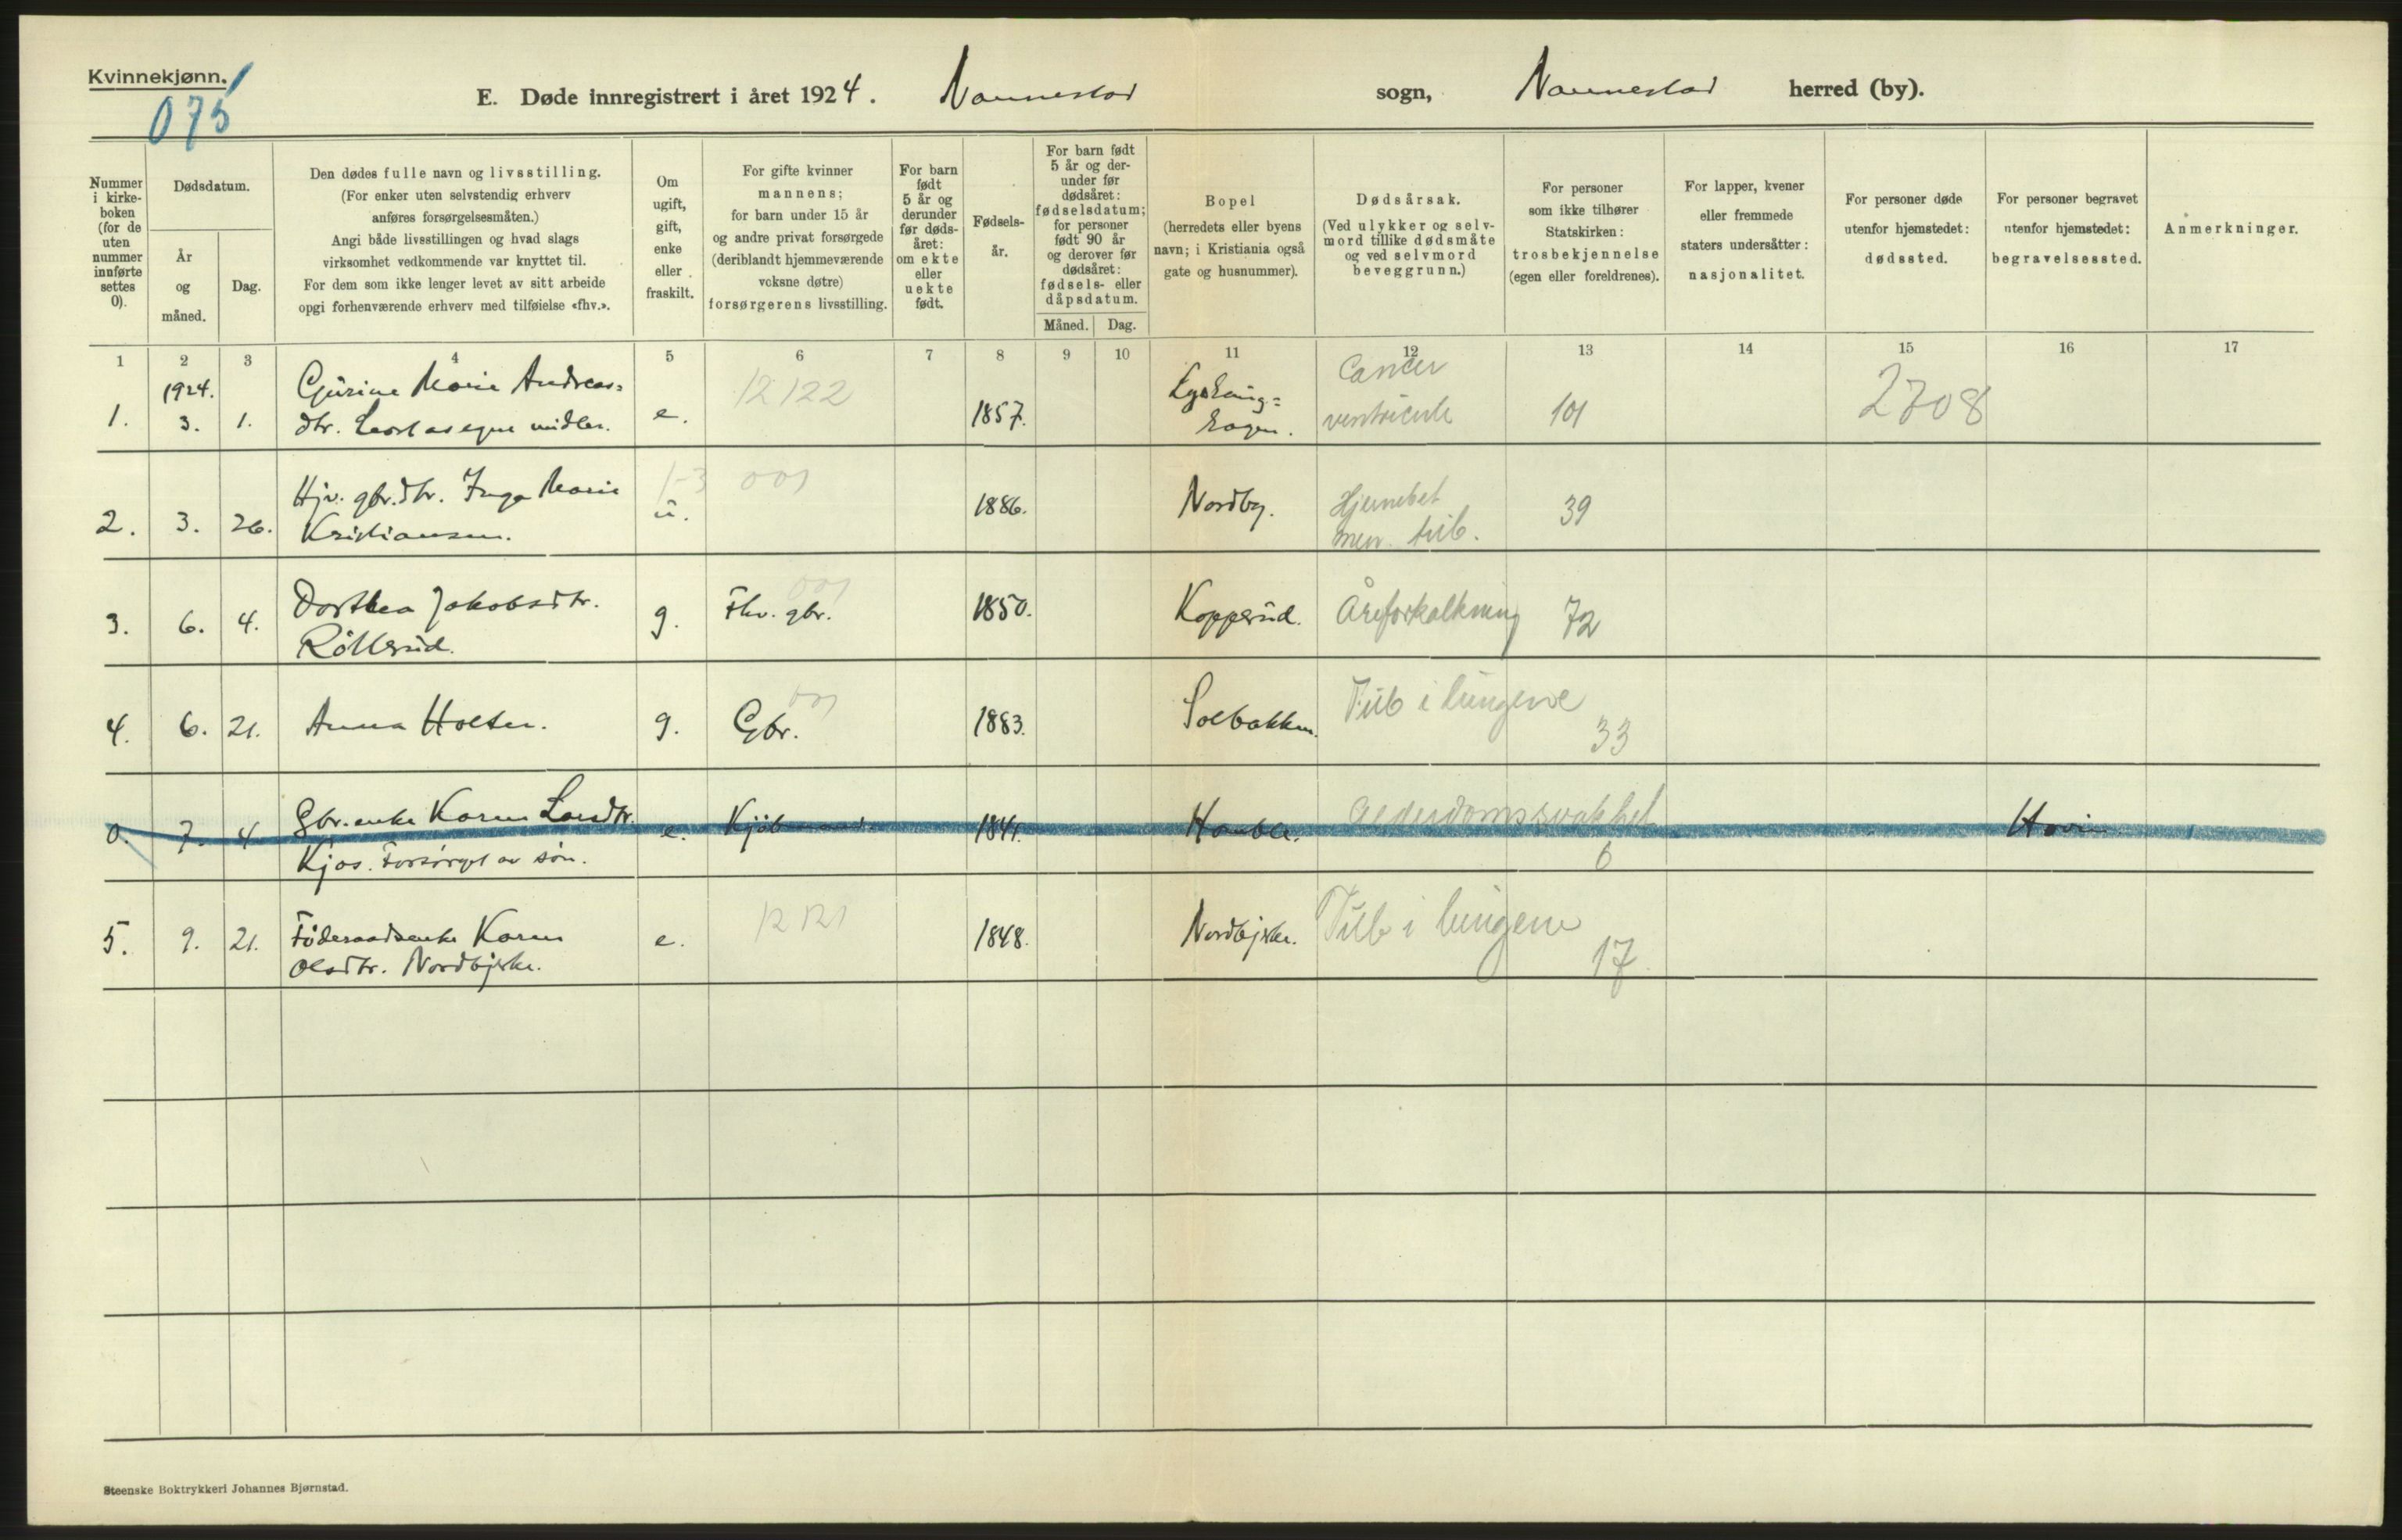 Kvinnekjønn.
075
E. Døde innregistrert i året 1924. Nannestad sogn, Nannestad herred (by).
Nummer i kirke- boken (for de uten nummer innførte settes 0).
Dødsdatum.
År og måned.
Dag.
Den dødes fulle navn og livsstilling.
(For enker uten selvstendig erhverv
anføres forsørgelsesmåten.)
Angi både livsstillingen og hvad slags
virksomhet vedkommende var knyttet til.
For dem som ikke lenger levet av sitt arbeide
opgi forhenværende erhverv med tilføielse «fhv.».
Om
ugift,
gift,
enke
eller
fraskilt.
For gifte kvinner
mannens;
for barn under 15 år
og andre privat forsørgede
(deriblandt hjemmeværende
voksne døtre)
forsørgerens livsstilling.
For barn
født
5 år og
derunder
før døds-
året:
om ekte
eller
uekte
født.
Fødsels-
år.
For barn født
5 år og der-
under før
dødsåret:
fødselsdatum;
for personer
født 90 år
og derover før
dødsåret:
fødsels- eller
dåpsdatum.
Måned. Dag.
Bopel
(herredets eller byens
navn; i Kristiania også
gate og husnummer).
Dødsårsak.
(Ved ulykker og selv-
mord tillike dødsmåte
og ved selvmord
beveggrunn.)
For personer
som ikke tilhører
Statskirken:
trosbekjennelse
(egen eller foreldrenes).
For lapper, kvener
eller fremmede
staters undersåtter:
nasjonalitet.
For personer døde
utenfor hjemstedet:
dødssted.
For personer begravet
utenfor hjemstedet:
begravelsessted.
Anmerkninger.
1 2 3 4 5 6 7 8 9 10 11 12 13 14 15 16 17
1924. Gurine Marie Andreas= 12122 Cancer 2708
1. 3. 1. dtr. av egne midler. e. 1857. ventricule 101
Hjv. gbr.dtr. Inga Marie 001
2. 3. 26. Kristiansen. u. 1886. Nordby. Hjernebet men. tub. 39
Dorthea Jakobsdtr. 001
3. 6. 4. Röllerud. g. Fhv. gbr. 1850. Kopperud. Åreforkalkning 72
001
4. 6. 21. Anna Holter. g. Gbr. 1883. Solbakken. Tub i lungene 33
0. 7. 4. Gbr.enke Karen Larsdtr. e. 1841. Alderdomssvakhet Hovin
Kjos. Forsörget av sön. 6
5. 9. 21. Föderaadsenke Karen e. 12121 1848. Nordbjerke. Tub i lungene
Olsdtr. Nordbjerke. 17
Steenske Boktrykkeri Johannes Bjørnstad.